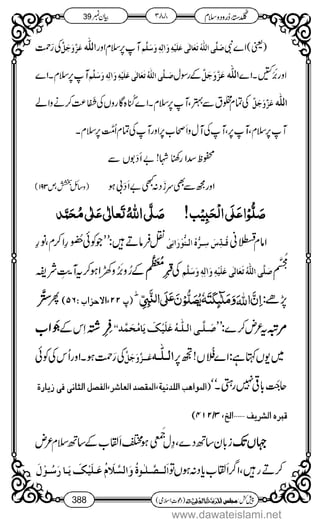 بیان نمبر 39
۳۸۸
گلدستۂ درود و سلام
(یعنی) اے نبی صَلَّی اللہُ تَعَالٰی عَلَیْہِ وَاٰلِہٖ وَسَلَّم آپ پر سلام اور اللہ عَزَّوَجَلَّ کی رحمت
اور برکتیں۔ اے اللہ عَزَّوَجَلَّ کے رسول صَلَّی اللہُ تَعَالٰی عَلَیْہِ وَاٰلِہٖ وَسَلَّم آپ پر سلام۔ اے
اللہ عَزَّوَجَلَّ کی تمام مخلوق سے بہتر، آپ پر سلام، اے گناہگاروں کی شفاعت کرنے والے
آپ پر سلام، آپ پر، آپ کی آل واصحاب پر اور آپ کی تمام اُمَّت پر سلام۔
محفوظ سدا رکھنا شہا! بے اَدَبوں سے
اور مجھ سے بھی سرزد نہ کبھی بے اَدَبی ہو (وسائلِ بخشش، ص۱۹۳)
صَلُّوْا عَلَی الْحَبِیْب! صَلَّی اللہُ تَعَالٰی عَلٰی مُحَمَّد
امام قسطلانی قُدِّسَ سِرُّہُ النُّوْرَانِی نقل فرماتے ہیں: ’’جو کوئی حُضُورِ اکرم، نورِ
مُجَسَّم صَلَّی اللہُ تَعَالٰی عَلَیْہِ وَاٰلِہٖ وَسَلَّم کی قبرِ مُعَظَّم کے رُوبَرُو کھڑا ہو کر یہ آیتِ شریفہ
پڑھے: اِنَّ اللّٰهَ وَ مَلٰٓىٕكَتَهٗ یُصَلُّوْنَ عَلَى النَّبِیِّؕ (پ ۲۲، الاحزاب: ۵۶) پھر ستر
مرتبہ یہ عرض کرے: ’’صَلَّی اللہُ عَلَیْکَ یَا مُحَمَّد‘‘ فرشتہ اس کے جواب
میں یوں کہتا ہے: اے فُلاں! تجھ پر اللہ عَزَّوَجَلَّ کی رحمت ہو۔ اور اُس کی کوئی
حاجت باقی نہیں رہتی۔‘‘ (المواھب اللدنیة، المقصد العاشر، الفصل الثانی فی زیارة
قبرہ الشریف ...الخ، ۴۱۲/۳)
جہاں تک زبان ساتھ دے، دل جمعی ہو مختلف اَلقاب کے ساتھ سلام عرض
کرتے رہیں، اگر اَلقاب یاد نہ ہوں تو اَلصَّلٰوۃُ وَالسَّلَامُ عَلَیْکَ یَا رَسُوْلَ
388
www.dawateislami.net